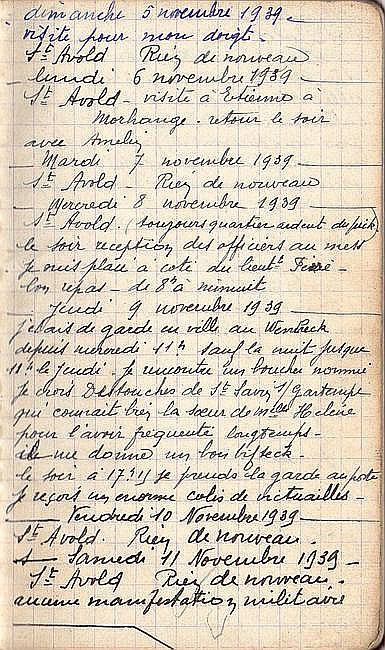 dimanche 5 novembre 1939 -
visite pour mon doigt.
St Avold Rien de nouveau
lundi 6 novembre 1939 -
St Avold - visite à Etienne à
Morhange. retour le soir
avec Amélie
- Mardi 7 novembre 1939 -
St Avold - Rien de nouveau
- Mercredi 8 novembre 1939 -
St Avold. (toujours quartier ardent du
le soir réception des officiers au mess
je suis placé à coté du lieutt
bon repas - de 8h à minuit
- Jeudi 9 novembre 1939 -
j'étais de garde en ville au
depuis mercredi 11h sauf la nuit jusque
11h le jeudi. je rencontre un boucher nommé
je crois Destouches de St Savin s/ Gartempe
qui connait bien la sœur de Hélène
pour l'avoir fréquenté longtemps -
il me donne un bon bifteck -
le soir à 17h15 je prends la garde au poste
je reçois un enorme colis de victuailles -
- Vendredi 10 Novembre 1939 -
St Avold. Rien de nouveau.
- Samedi 11 Novembre 1939 -
St Avold Rien de nouveau.
aucune manifestation militaire